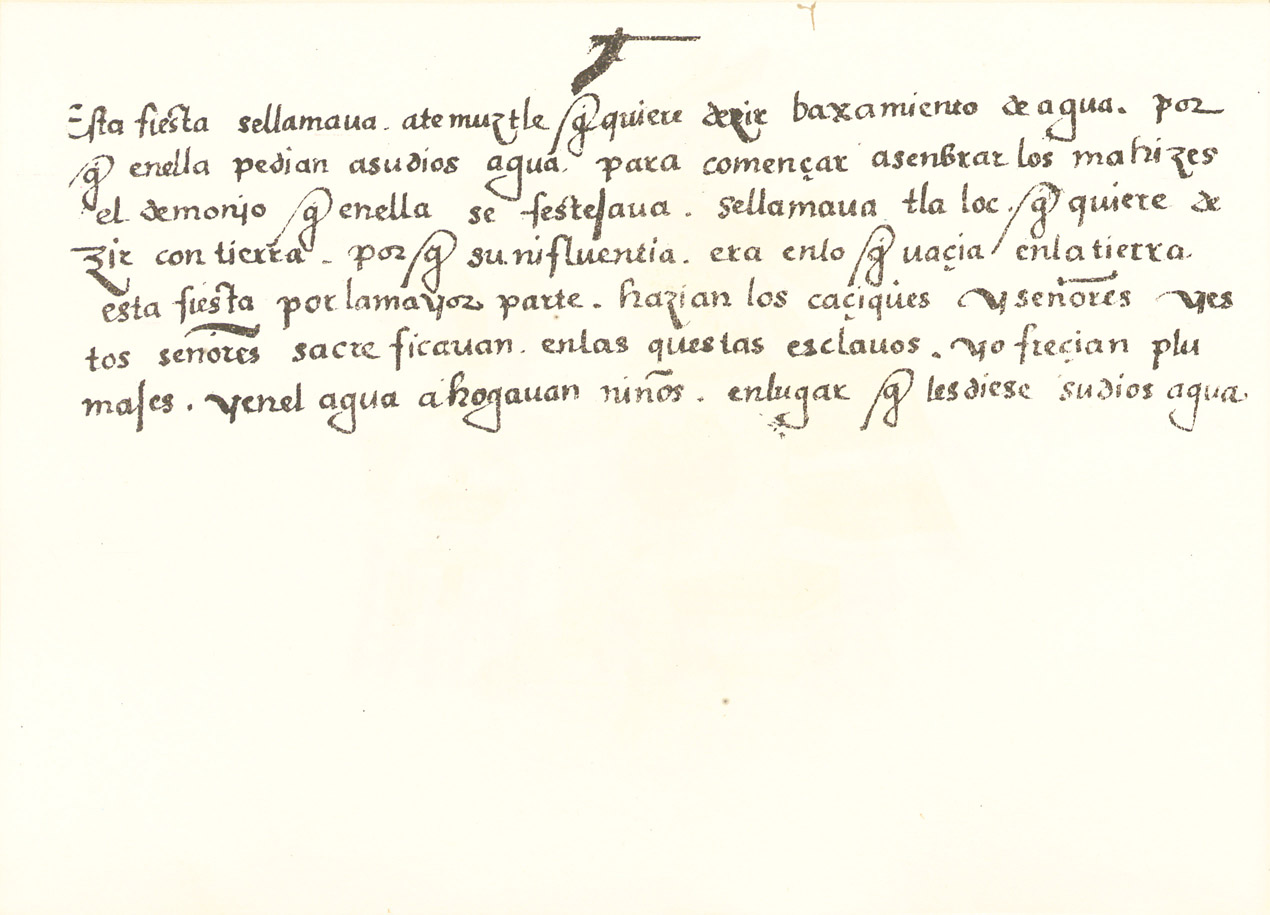 Esta fiesta sellamaua. atemuztle q̃ quiere dezir baxamiento de agua. por
q̃ enella pedian asudios agua. para començar asenbrar los mahizes
el demonjo q̃ enella se festejaua. sellamaua tla loc. q̃ quiere de
zir con tierra. por q̃ su nifluentia. era enlo q̃ uaçia enlatierra.
esta fiesta por lamayor parte. hazian los caçiques y señores yes
tos señores sacre ficauan. enlas questas esclauos. yo freçian plu
majes. yenel agua ahogauan niños. enlugar q̃ lesdiese sudios agua.